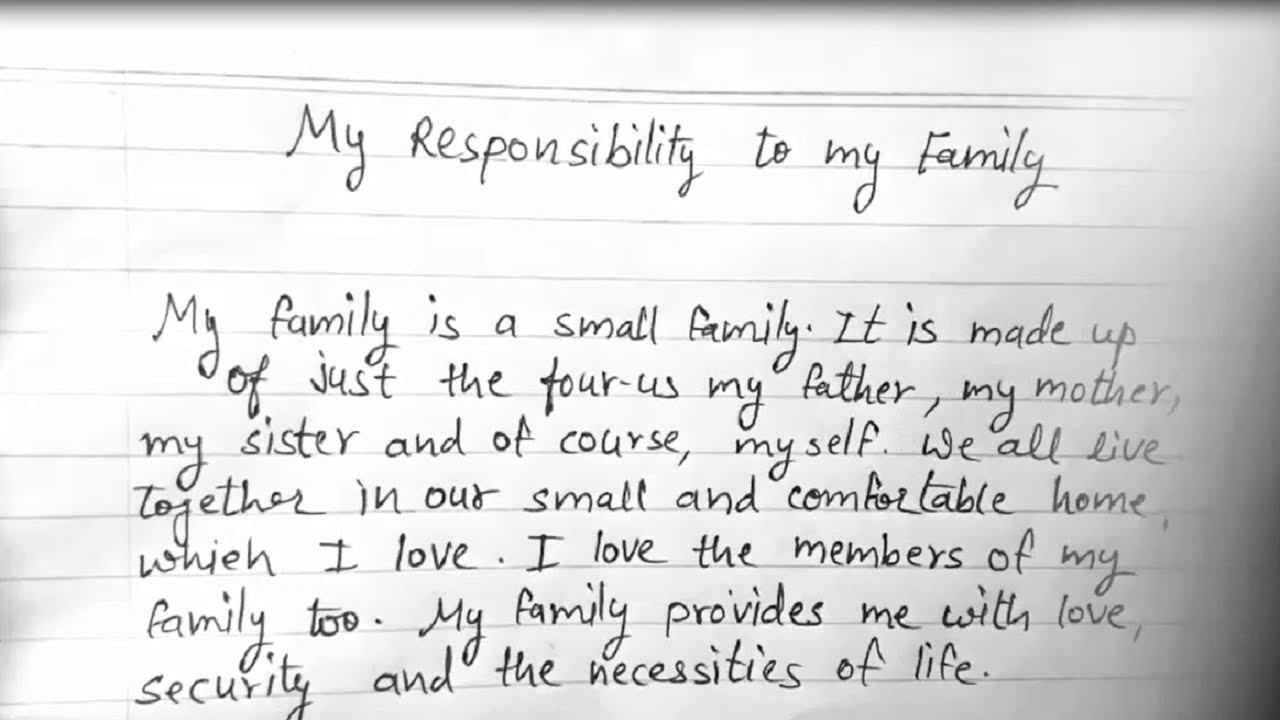 My Responsibility to my Family
My family is a small family. It is made up
of just the four-us my father, my mother,
my sister and of course, myself. We all live
together in our small and comfortable home,
which I love. I love the members of my
family too. My family provides me with love,
security and the necessities of life.